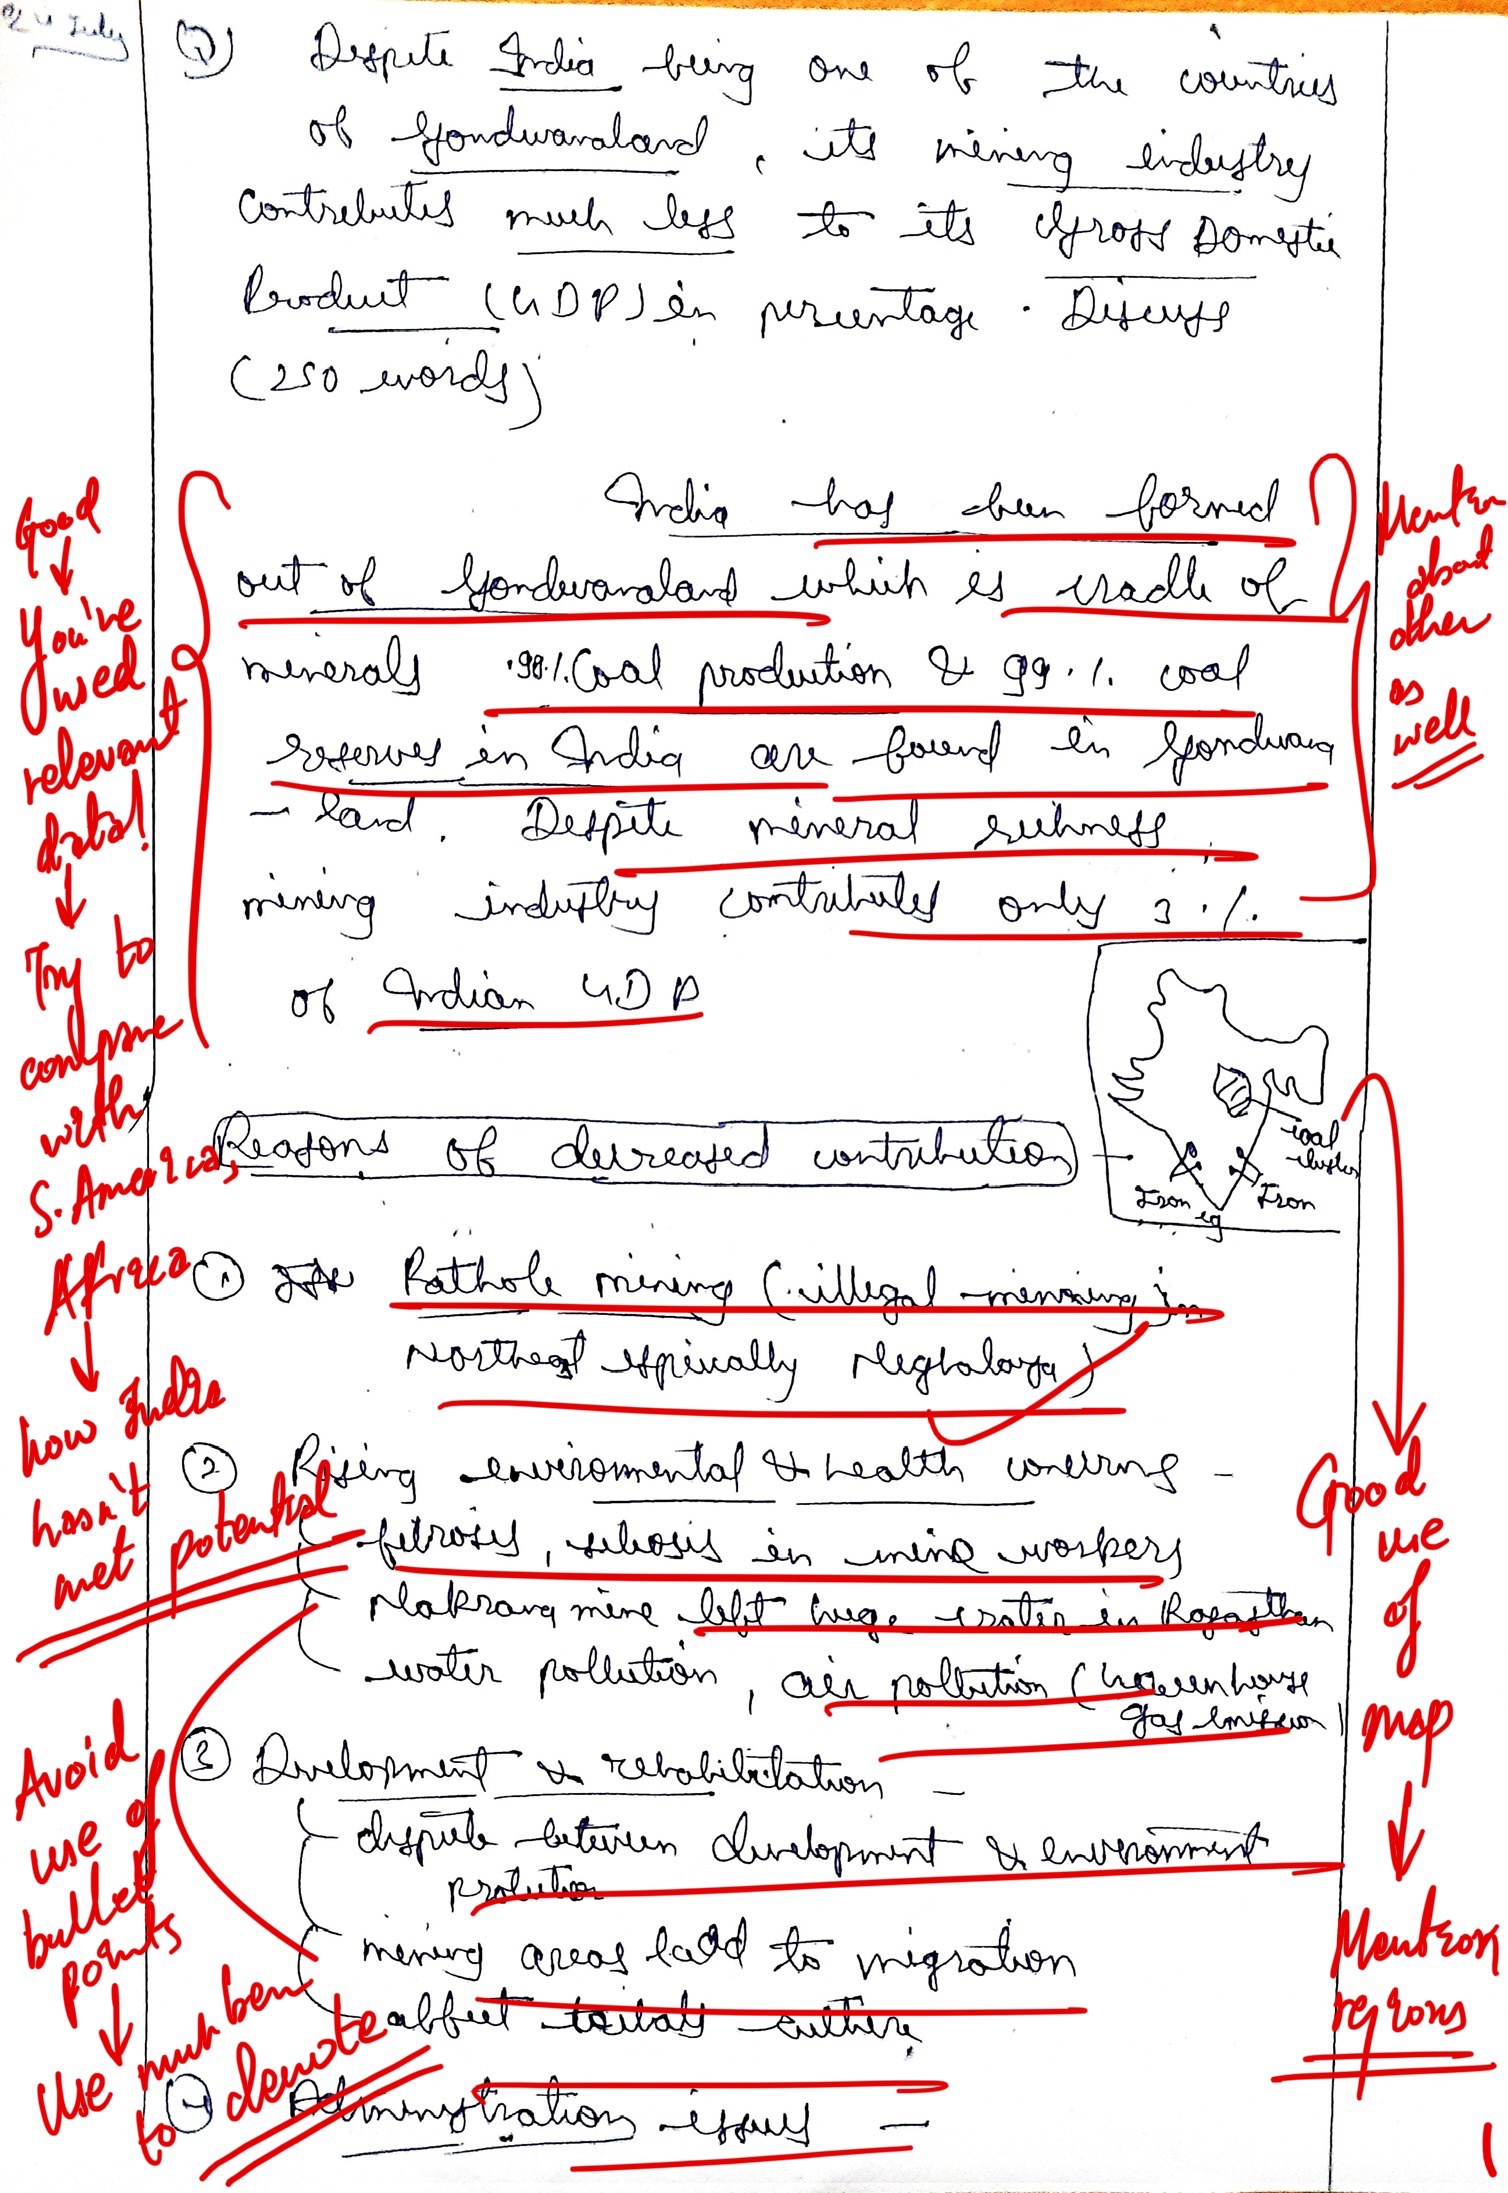 24 July
Q) Despite India being one of the countries
of Gondwanaland, its mining industry
contributes much less to its Gross Domestic
Product (GDP) in percentage. Discuss
(250 words)
India has been formed
out of Gondwanaland which is cradle of
minerals .98% Coal production & 99.1. coal
reserves in India are found in Gondwana
- land. Despite mineral richness
mining industry contributes only 3 %.
of Indian GDP
coal
cluster
Iron Iron
Reasons of decreased contribution -
① Rathole mining (illegal mining in
Northeast especially Meghalaya)
② Rising environmental & health concerns -
fibrosis, silicosis in mine workers
Makrana mine left huge crater in Rajasthan
water pollution, air pollution (Greenhouse
gas emission)
③ Development & rehabilitation -
dispute between development & environment
mining areas lead to migration
affect tribals culture
④ Administration issues -
Good
You've
used
relevant
data!
Try to
compare
with
S. America,
Africa
how India
hasn't
met potential
Avoid
use of
bullet
points
Use
to denote
Mention
about
other
as
well
Good
use
of
map
Mention
regions
1